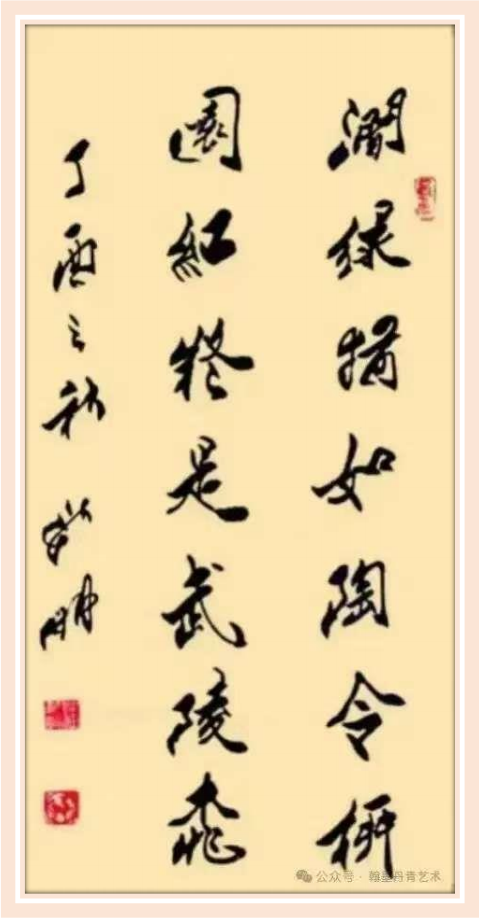 澗绿猶如陶令柳
園紅疑是武陵桃
丁酉之秋
公众号 · 翰墨丹青艺术